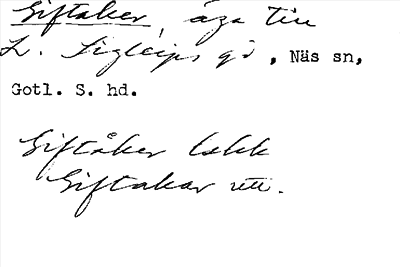 Giftaker, äga till
L. Sigleips gd, Näs sn,
Gotl. S. hd.
Giftåker
Giftakar utt.